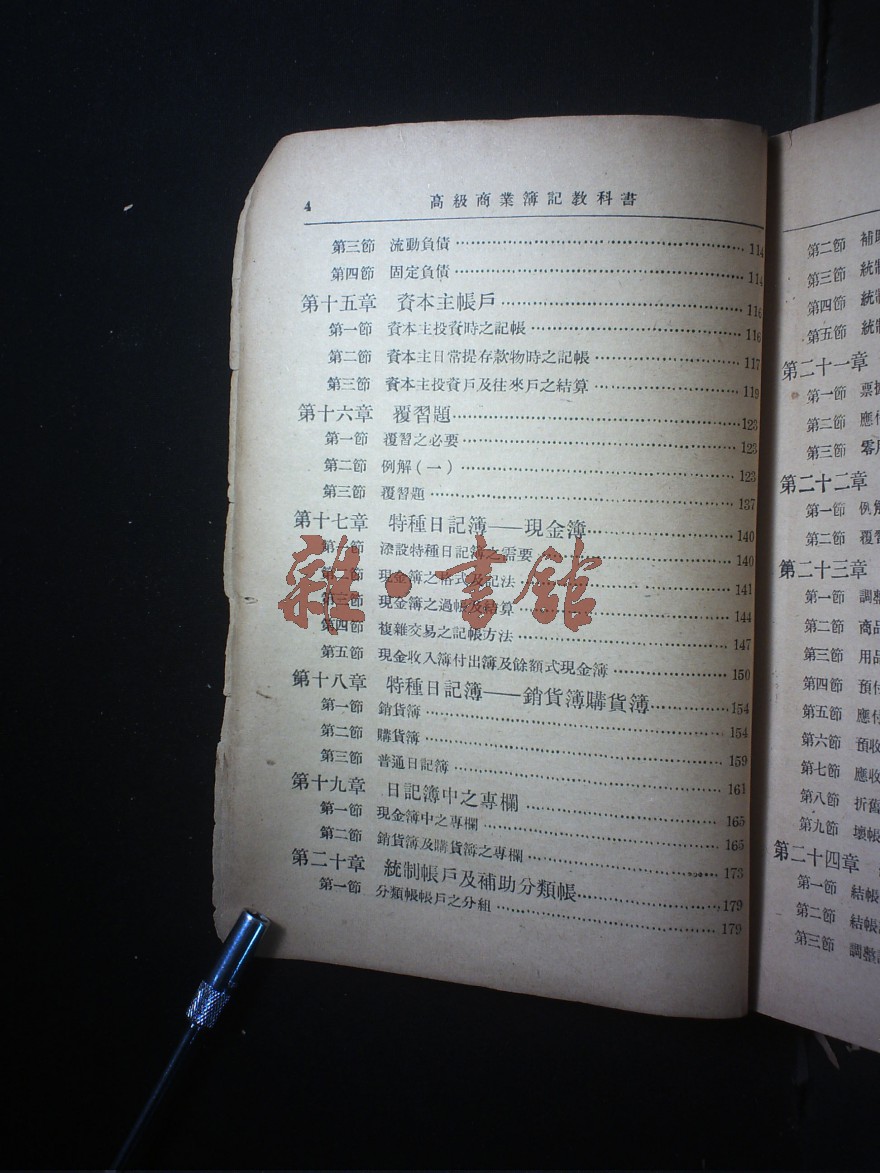 4 高級商業簿記教科書
第三節 流動負債 114
第四節 固定負債 114
第十五章 資本主帳戶 116
第一節 資本主投資時之記帳 116
第二節 資本主日常提存款物時之記帳 117
第三節 資本主投資戶及往來戶之結算 119
第十六章 覆習題 123
第一節 覆習之必要 123
第二節 例解(一) 123
第三節 覆習題 137
第十七章 特種日記簿——現金簿 140
第一節 添設特種日記簿之需要 140
第二節 現金簿之格式及記法 141
第三節 現金簿之過帳及結算 144
第四節 複雜交易之記帳方法 147
第五節 現金收入簿付出簿及餘額式現金簿 150
第十八章 特種日記簿——銷貨簿購貨簿 154
第一節 銷貨簿 154
第二節 購貨簿 159
第三節 普通日記簿 161
第十九章 日記簿中之專欄 165
第一節 現金簿中之專欄 165
第二節 銷貨簿及購貨簿之專欄 173
第二十章 統制帳戶及補助分類帳 179
第一節 分類帳帳戶之分組 179
雜·書館
第二節 補
第三節 統制
第四節 統
第五節 統
第二十一章
第一節 票據
第二節 應付
第三節 零用
第二十二章
第一節 例解
第二節 覆
第二十三章
第一節 調整
第二節 商品
第三節 用品
第四節 預付
第五節 應付
第六節 預收
第七節 應收
第八節 折舊
第九節 壞帳
第二十四章
第一節 結帳
第二節 結帳
第三節 調整